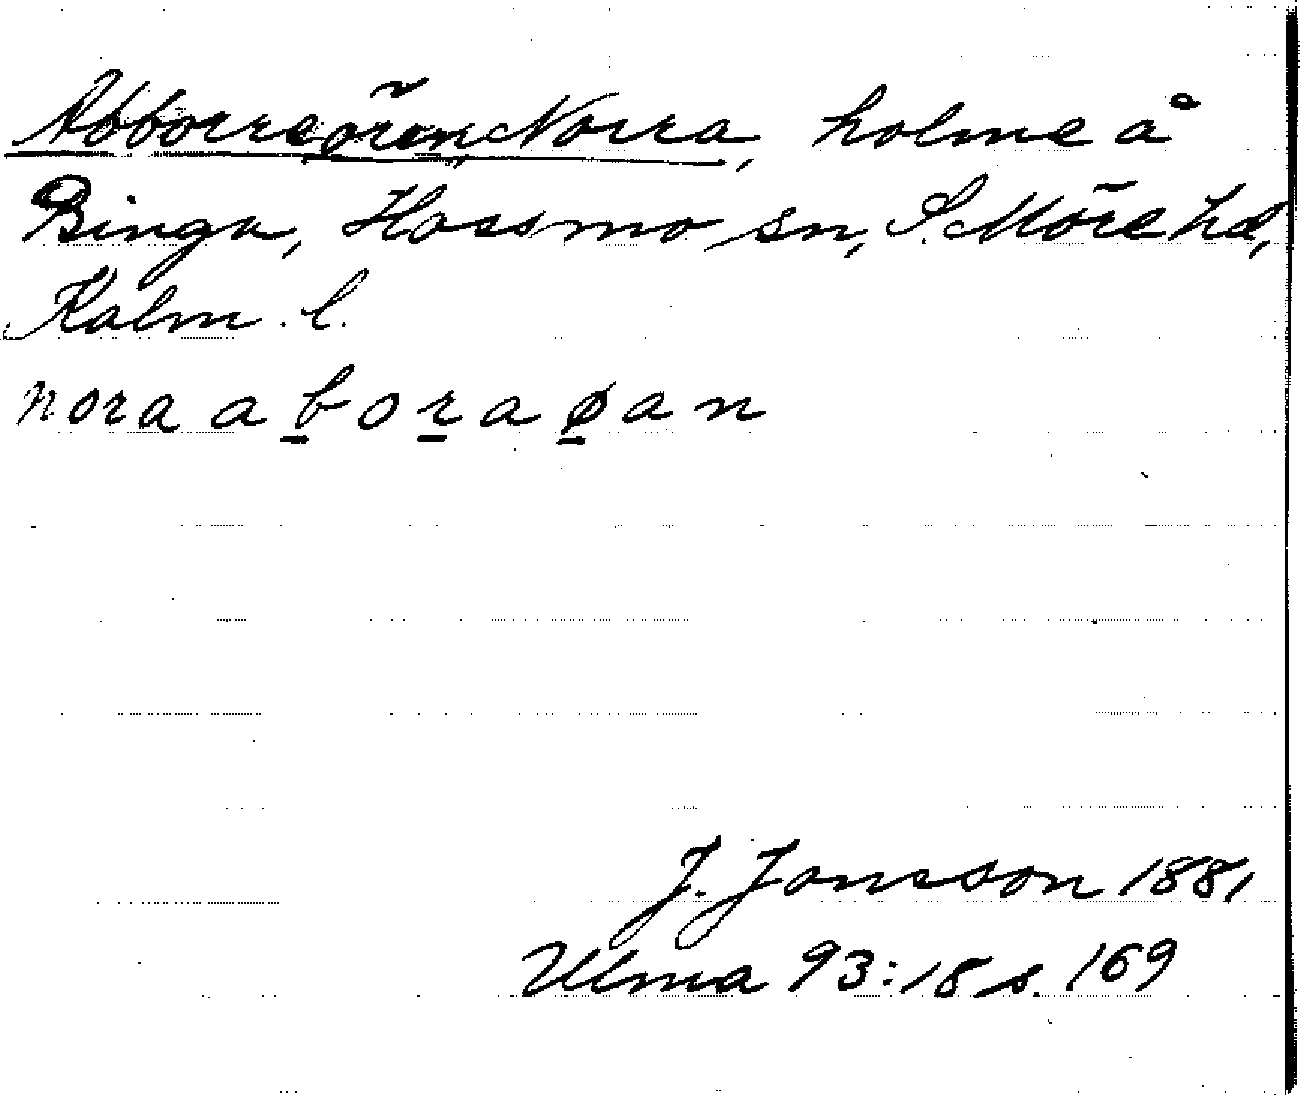 Abborreören, Norra, holme å
Binga, Hossmo sn, S. Möre hd,
Kalm. l.
nora aboraøan
J. Jonsson 1881,
Ulma 93:18 s. 169